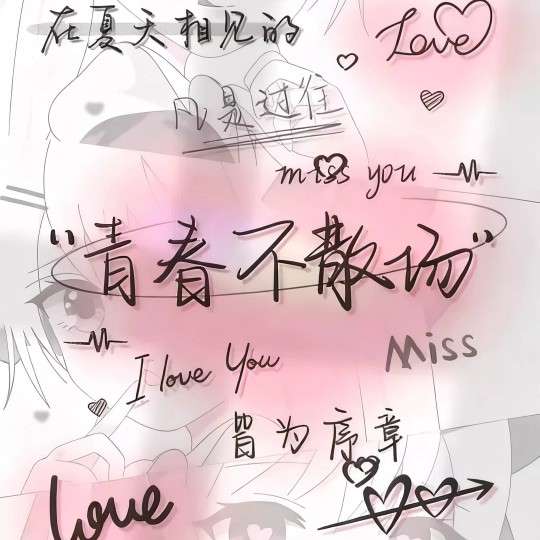 在夏天相见的
Love
凡是过往
miss you
“青春不散场”
I love You
Miss
皆为序章
Love